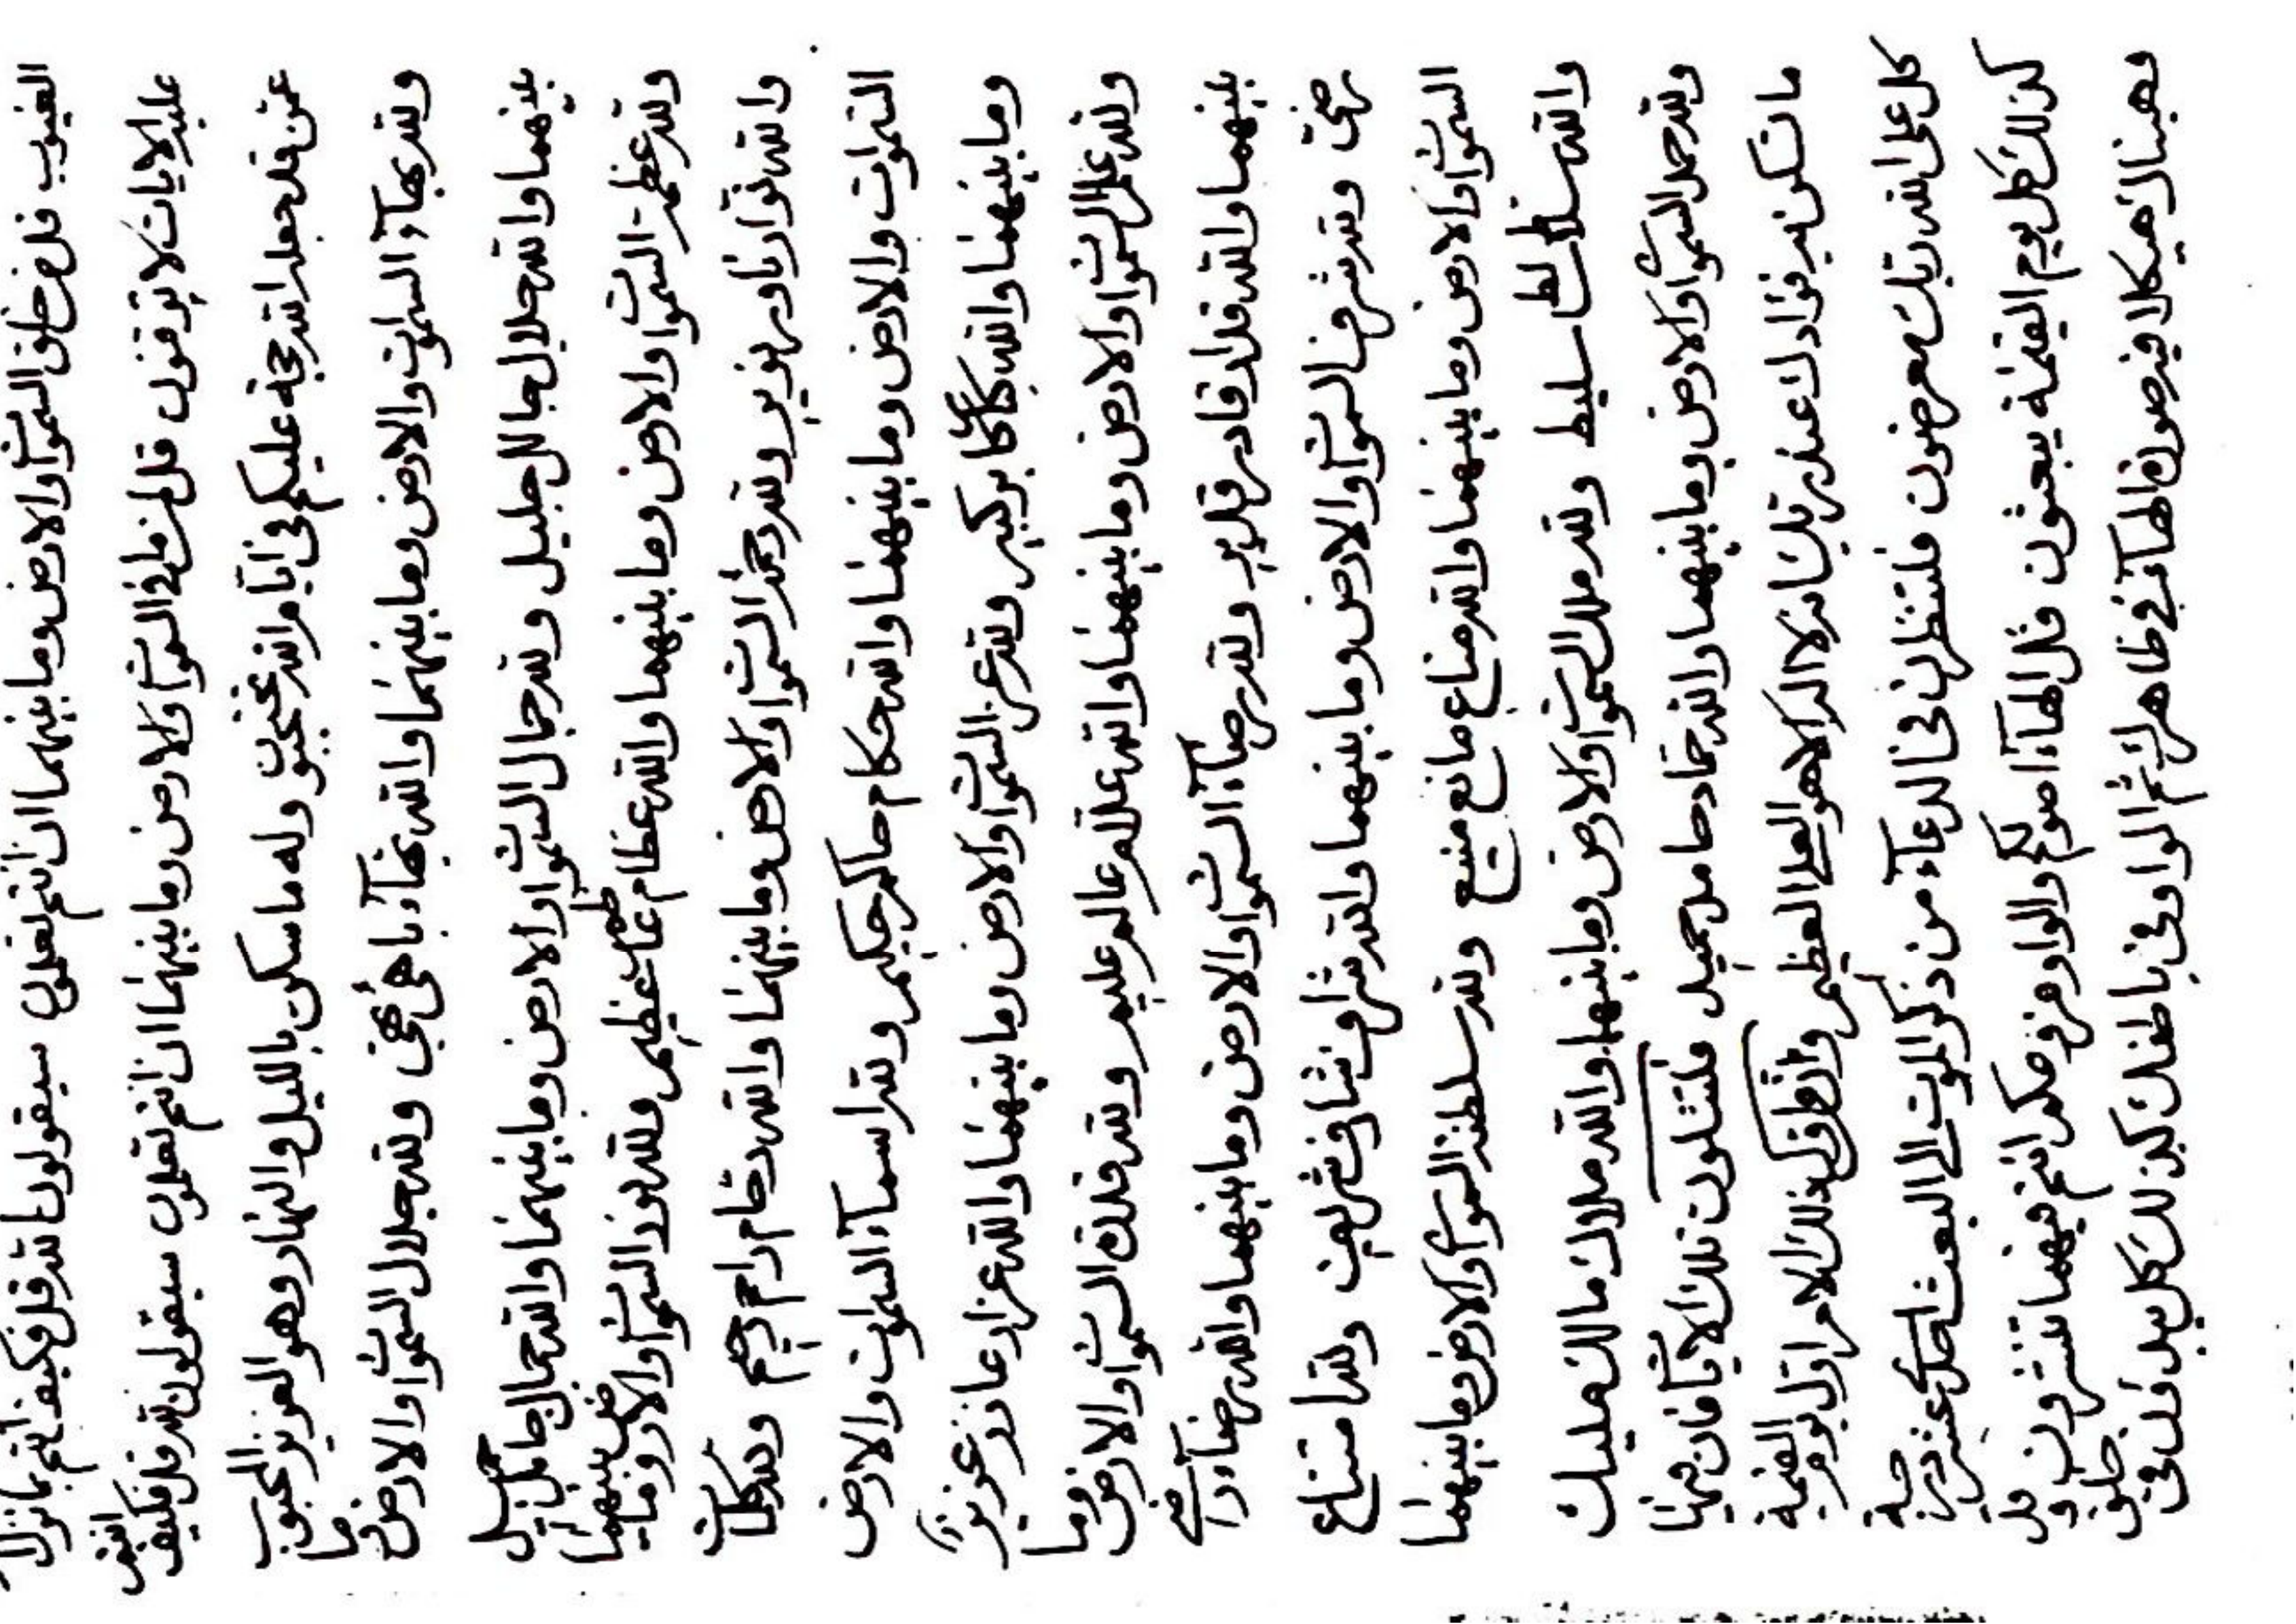 الغیوب قل من خلق السموات والارض وما بینهما ان انتم تعلمون سیقولون لله قل فکیف انتم بما نزل
علیه الایات لا توقنون قل لمن ما فی السموات والارض وما بینهما ان انتم تعلمون سیقولون لله قل فکیف انتم
عمن قد جعله الله حجة علیکم فی ایام الله تحتجبون وله ما سکن باللیل والنهار وهو العزیز المحبوب
ولله بهآء السموات والارض وما بینهما والله بهآء باهی بهی ولله جلال السموات والارض وما
بینهما والله جلال جالل جلیل ولله جمال السموات والارض وما بینهما والله جمال جامل جمیل
ولله عظمة السموات والارض وما بینهما والله عظام عاظم عظیم ولله نور السموات والارض وما بینهما
والله نوار ناور نویر ولله رحمة السموات والارض وما بینهما والله رحام راحم رحیم ولله کلمات
السموات والارض وما بینهما والله حکام حاکم حکیم ولله اسمآء السموات والارض
وما بینهما والله کبار کابر کبیر ولله عزة السموات والارض وما بینهما والله عزاز عازز عزیز
ولله علم السموات والارض وما بینهما والله علام عالم علیم ولله قدرة السموات والارض وما
بینهما والله قدار قادر قدیر ولله رضآء السموات والارض وما بینهما والله رضآء راضی
رضی ولله شرف السموات والارض وما بینهما والله شراف شارف شریف ولله امتناع
السموات والارض وما بینهما والله مناع مانع منیع ولله سلطنة السموات والارض وما بینهما
والله سلاط سالط سلیط ولله ملک السموات والارض وما بینهما والله ملاک مالک ملیک
ولله حمد السموات والارض وما بینهما والله حماد حامد حمید فلتتلون تلک الایات فان مهما
ما تکونن به فؤادک عند ربک انه لا اله الا هو العلی العظیم ذلک الامر اول یوم القیمة
کل علی الله ربک معرضون فلتنظرن فی الدعآء من ذکر الموت الی البعث عشر درجة
کذلک کل یوم القیمة یبعثون قل الهآء والواو من انتم فیهما تنشرون قل
وهبنا لک هیکلا فیه صورة الهآء فی ظاهرک ثم الواو فی باطنک کذلک کل قل فی خلق